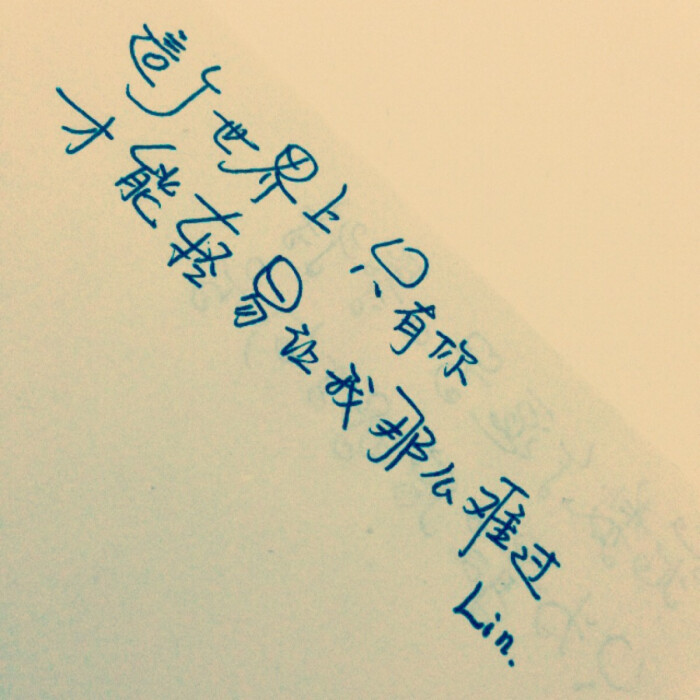 這个世界上只有你
才能轻易让我那么难过
Lin.